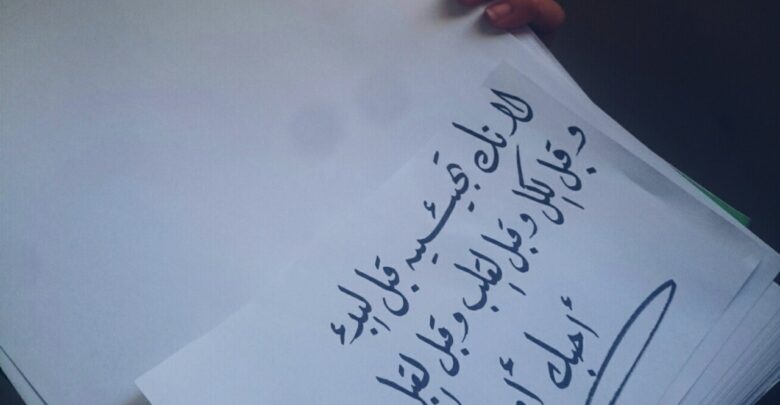 لأنك تجيئين قبل البدء
وقبل الكل وقبل القلب وقبل
أحبك